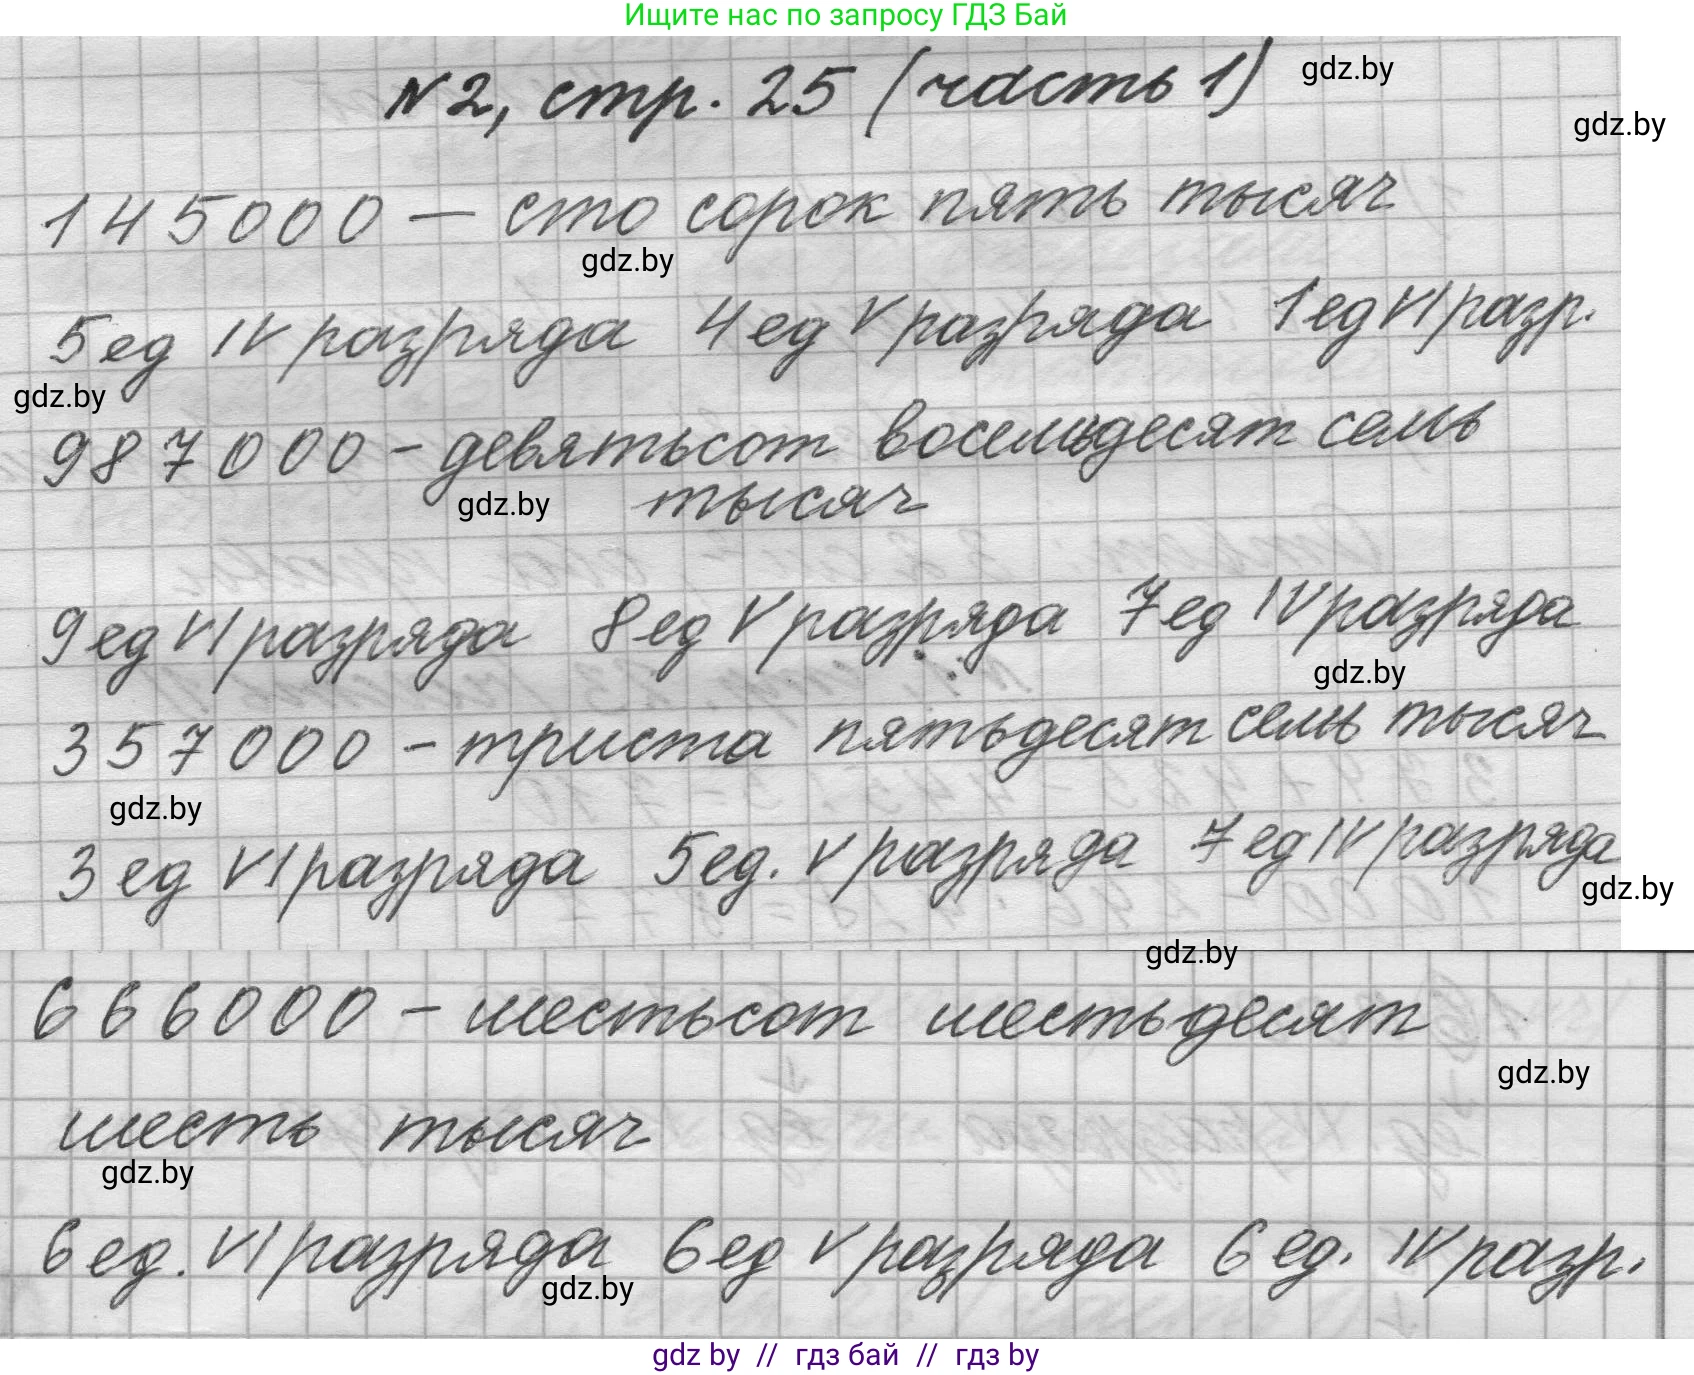 Ищите нас по запросу ГДЗ Бай
N2, стр. 25 (часть 1)
gdz.by
gdz.by
145000 — сто сорок пять тысяч
gdz.by
5 ед IV разряда 4 ед V разряда 1 ед VI разр.
gdz.by
987000 - девятьсот восемьдесят семь
gdz.by
тысяч
9 ед VI разряда 8 ед V разряда 7 ед IV разряда
gdz.by
357000 - триста пятьдесят семь тысяч
gdz.by
3 ед VI разряда 5 ед. V разряда 7 ед IV разряда
gdz.by
gdz.by
666000 - шестьсот шестьдесят
gdz.by
шесть тысяч
gdz.by
6 ед. VI разряда 6 ед V разряда 6 ед. IV разр.
gdz.by
gdz by // гдз бай // гдз by